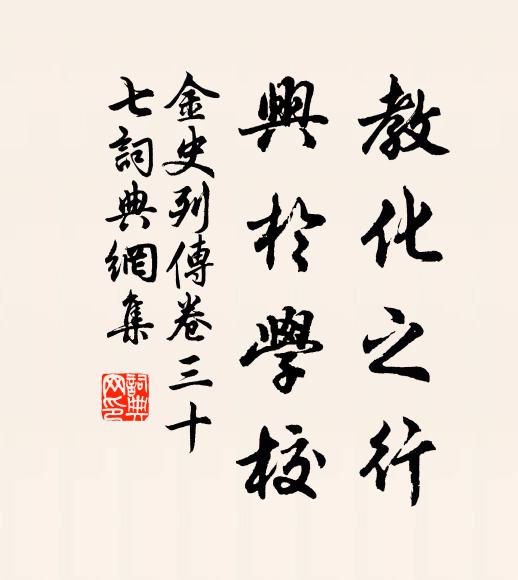 教化之行
興於學校
金史列傳卷三十
七詞典網集
詞典
网印